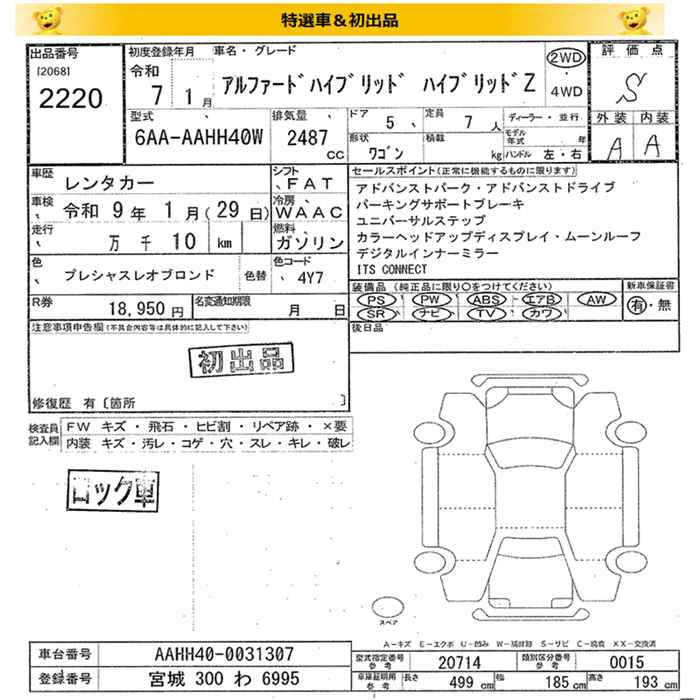 特選車＆初出品
出品番号
[2068]
2220
初度登録年月
令和
7 1 月
車名・グレード
アルファードハイブリッド ハイブリッドZ
2WD
・
4WD
評価点
S
型式
6AA-AAHH40W
排気量
2487
CC
ドア
5
定員
7 人
形状
ワゴン
積載
kg
ディーラー・並行
モデル年式 年
ハンドル 左・右
外装 内装
A A
車歴
レンタカー
シフト
FAT
車検
令和 9 年 1 月 (29 日)
冷房
WAAC
走行
万 千 10 km
燃料
ガソリン
色
プレシャスレオブロンド
色替
色コード
4Y7
R券
18,950 円
名変通知期限
月 日
セールスポイント(正常に機能するものに限ります)
アドバンストパーク・アドバンストドライブ
パーキングサポートブレーキ
ユニバーサルステップ
カラーヘッドアップディスプレイ・ムーンルーフ
デジタルインナーミラー
ITS CONNECT
装備品 (純正品に限り〇をつけてください)
PS PW ABS エアB AW
SR ナビ TV カワ
新車保証書
有・無
後日品
注意事項申告欄(不具合内容等は具体的に記入して下さい)
初出品
修復歴 有〔箇所 〕
検査員
記入欄
FW キズ・飛石・ヒビ割・リペア跡・×要
内装 キズ・汚レ・コゲ・穴・スレ・キレ・破レ
ロック車
スペア
車台番号
AAHH40-0031307
登録番号
宮城 300 わ 6995
型式指定番号
参考
20714
類別区分番号
参考
0015
車庫証明用
参考
長さ
499 cm
幅
185 cm
高さ
193 cm